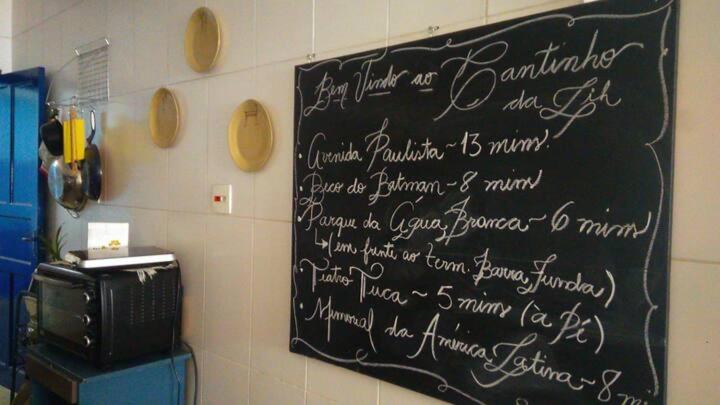 Bem Vindo ao Cantinho
da Zih
• Avenida Paulista ~ 13 mins.
• Beco do Batman ~ 8 mins
• Parque da Água Branca ~ 6 mins
↳ (em frente ao term. Barra Funda)
• Teatro Tuca ~ 5 mins (à Pé)
• Memorial da América Latina ~ 8 mi